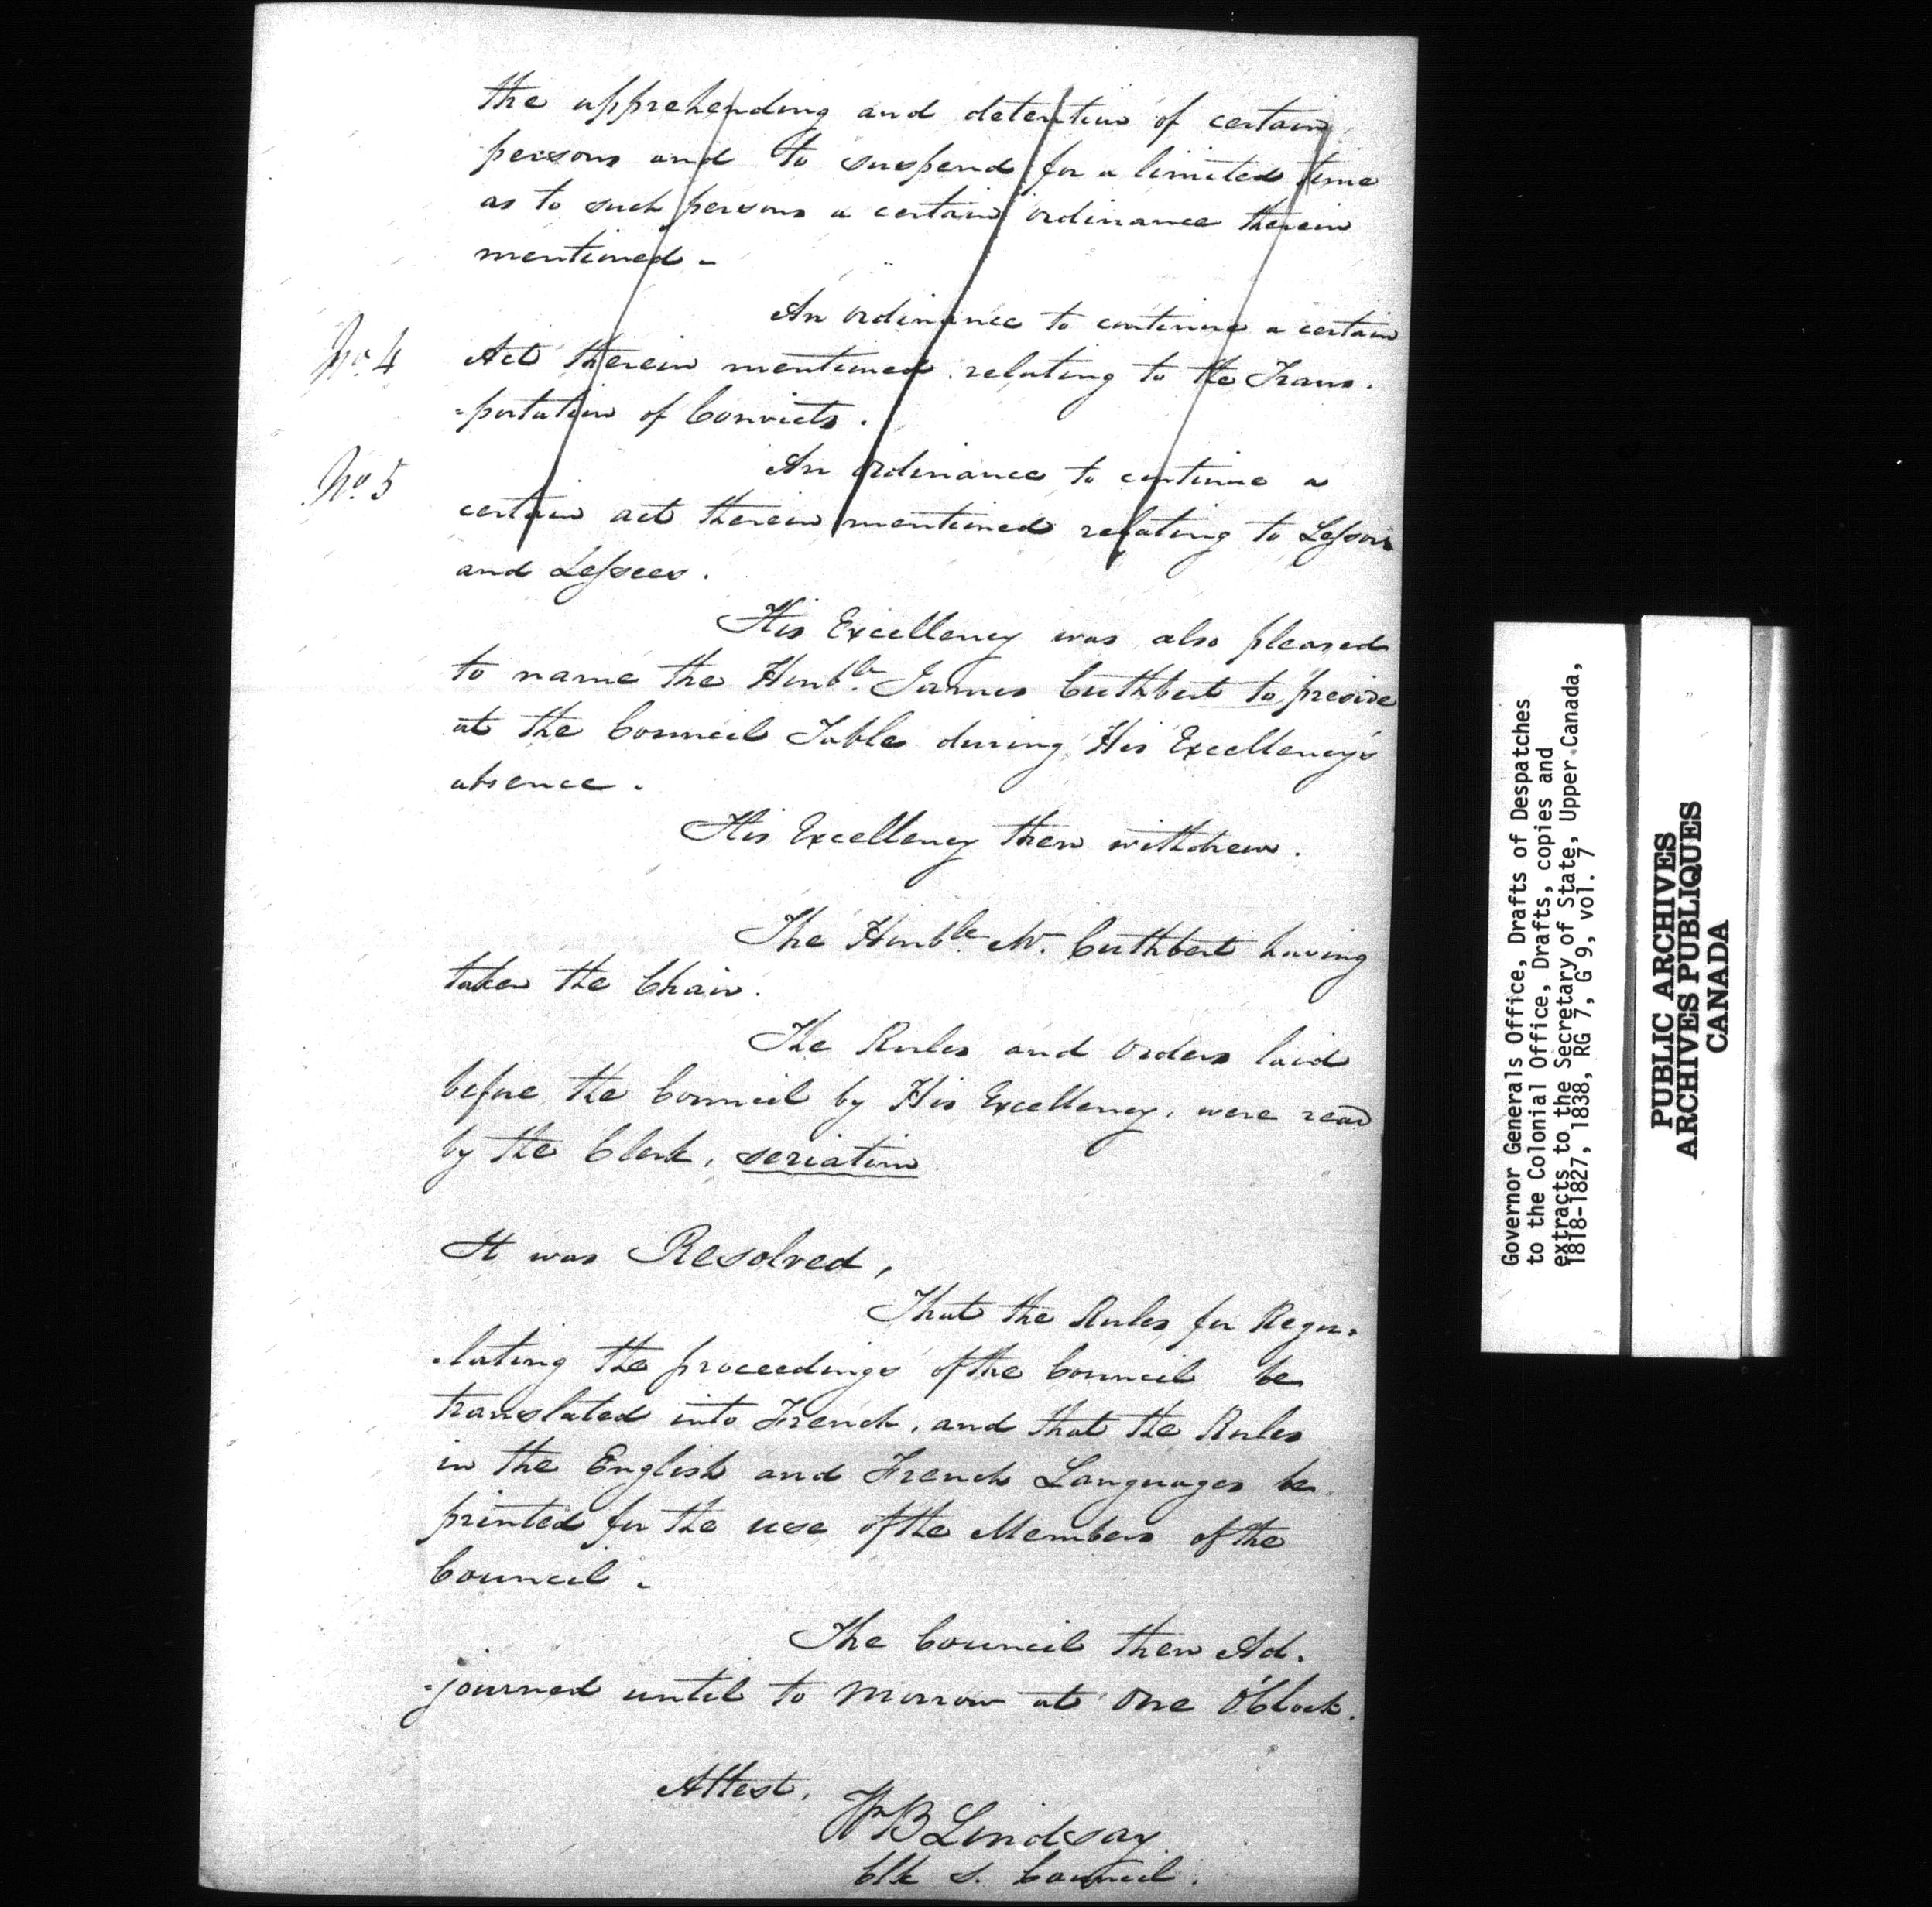 the apprehending and detention of certain
persons and to suspend for a limited time
as to such persons a certain ordinance therein
mentioned -
An ordinance to continue a certain
No. 4 Act therein mentioned relating to the Trans.
=portation of Convicts.
An Ordinance to continue a
No 5
certain act therein mentioned relating to Lessors
and Lessees.
His Excellency was also pleased
to name the Honble. James Cuthbert to preside
at the Council Table during His Excellency's
absence.
His Excellency then withdrew.
The Honble. Mr. Cuthbert having
taken the Chair.
The Rules and orders laid
before the Council by His Excellency, were read
by the Clerk, seriatim
It was Resolved,
That the Rules for Regu-
-lating the proceedings of the Council be
translated into French, and that the Rules
in the English and French Languages be
printed for the use of the Members of the
Council.
The Council then Ad-
-journed until to morrow at One O'Clock.
Attest.
Wm B Lindsay
Clk S. Council.
Governor Generals Office, Drafts of Despatches
to the Colonial Office, Drafts, copies and
extracts to the Secretary of State, Upper Canada,
1818-1827, 1838, RG 7, G 9, vol. 7
PUBLIC ARCHIVES
ARCHIVES PUBLIQUES
CANADA